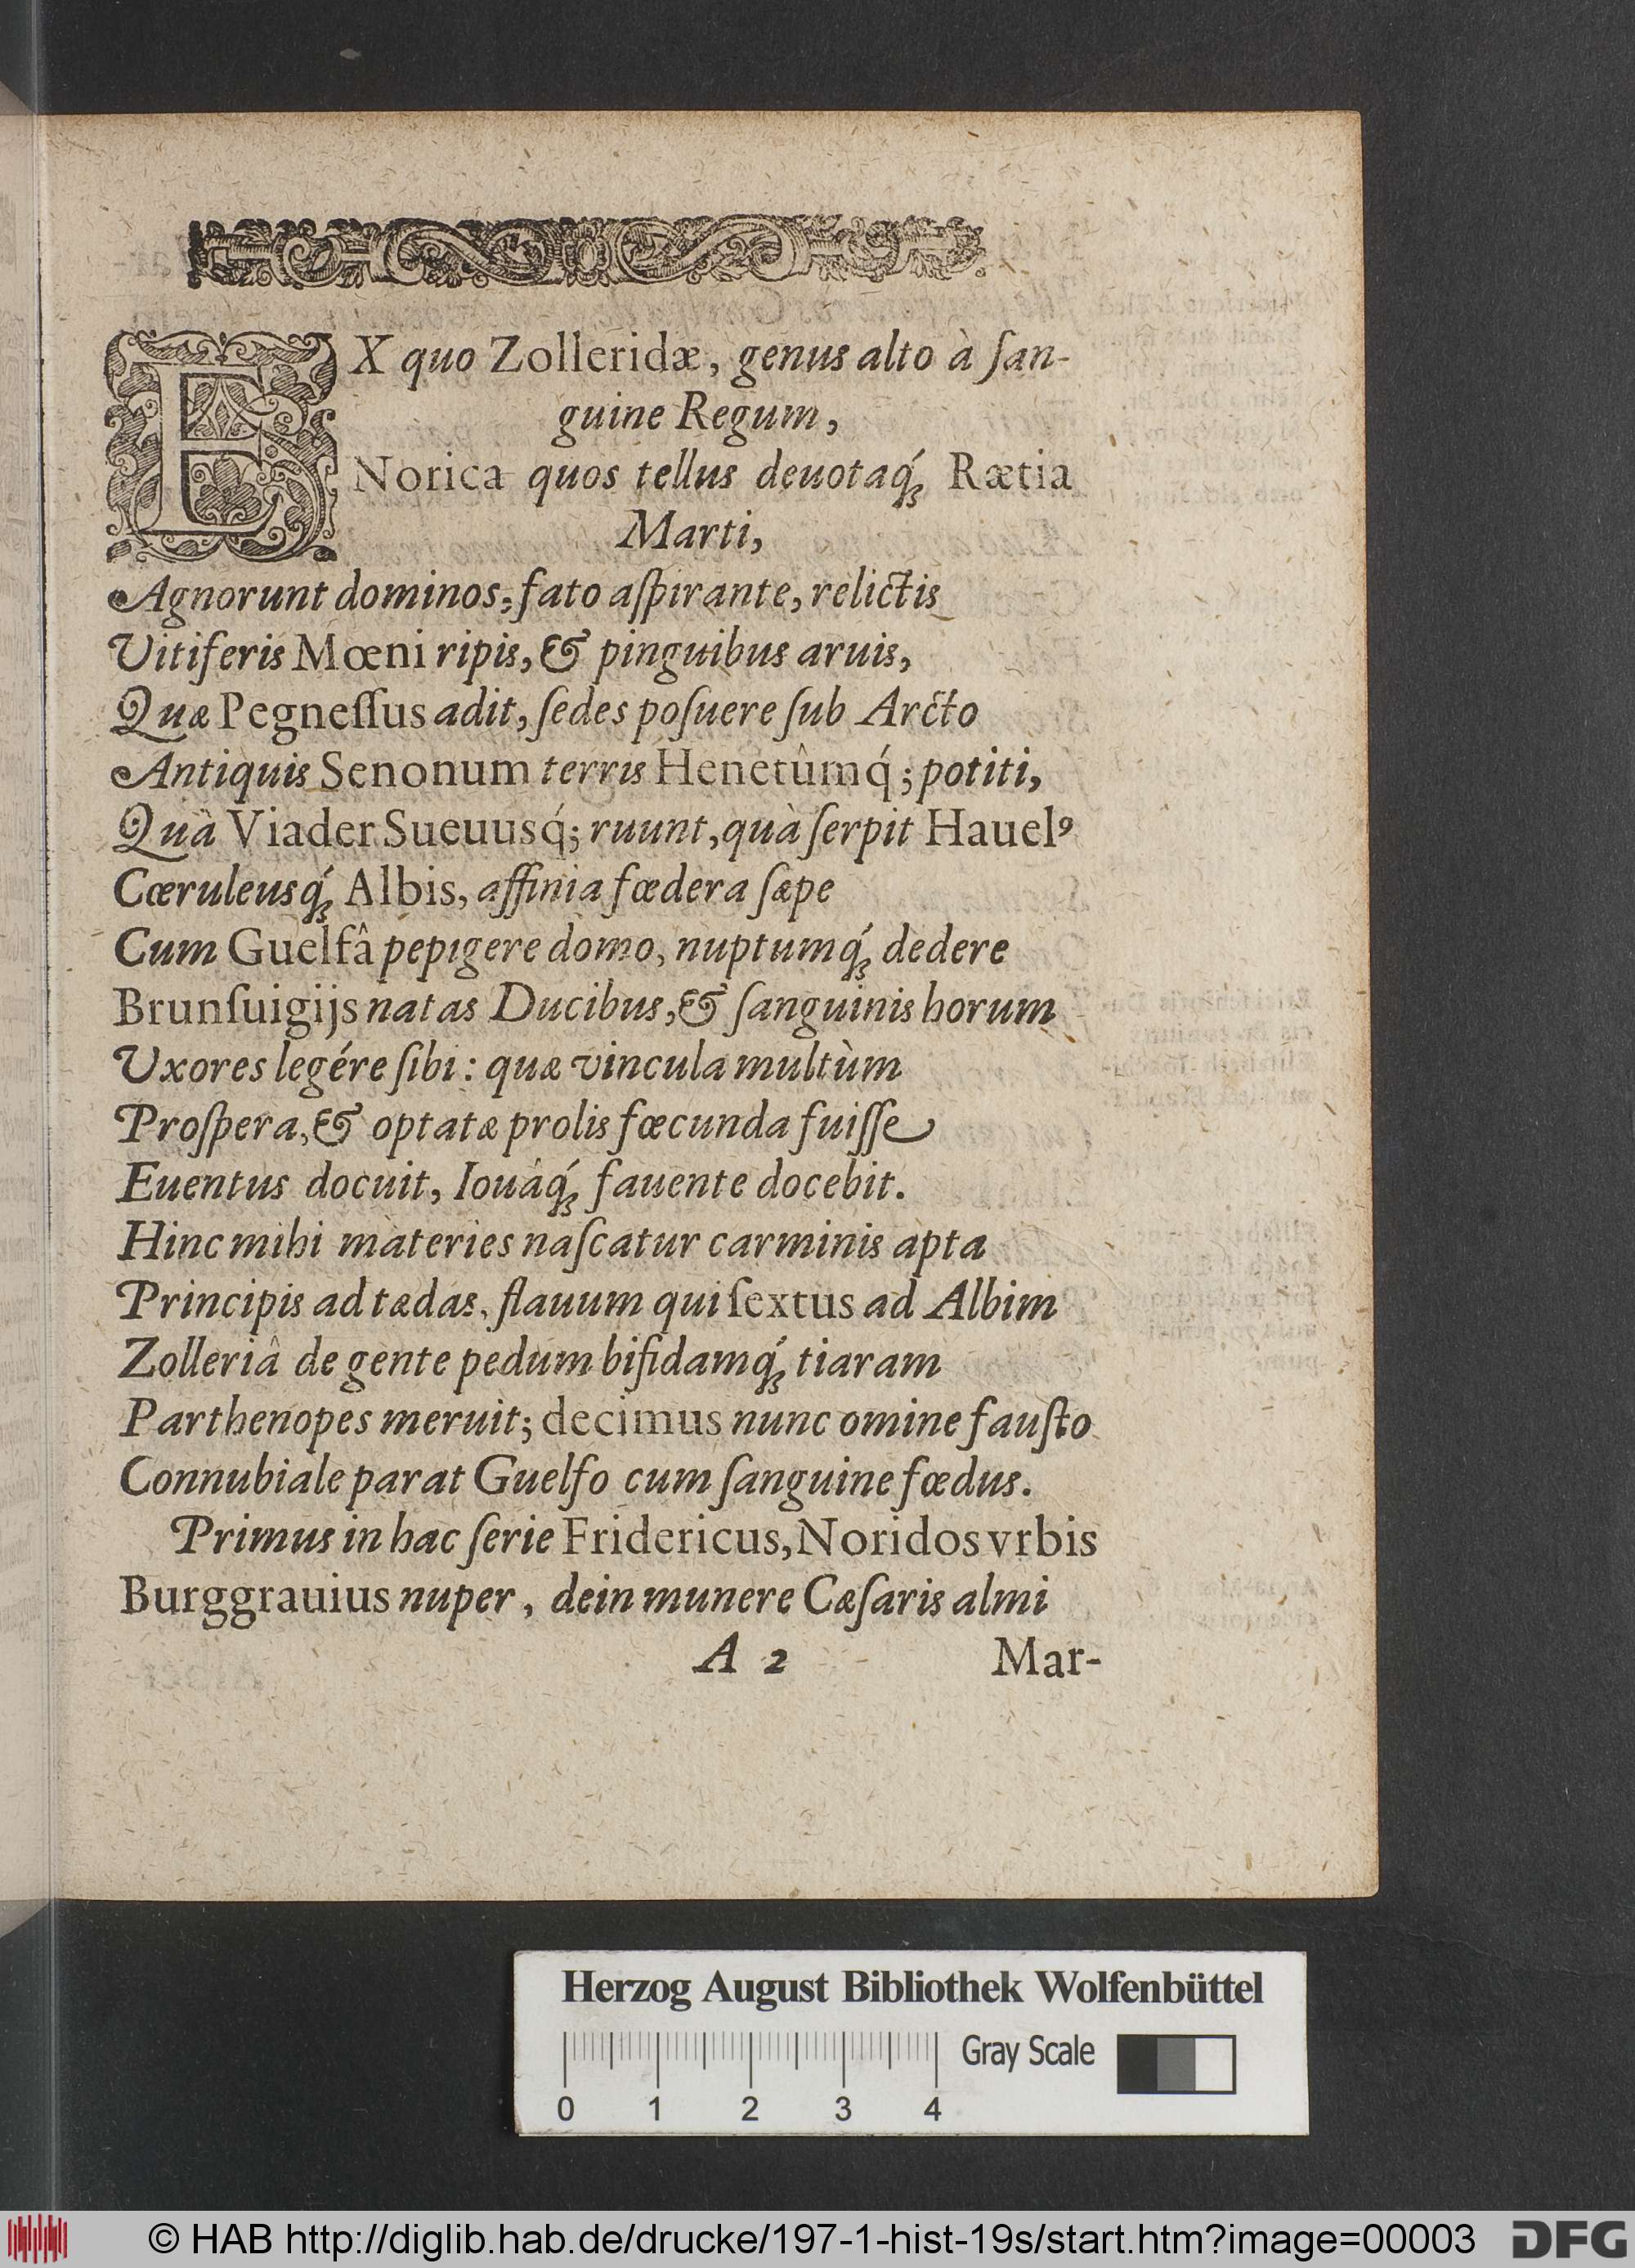 EX quo Zolleridæ, genus alto à ſan-
guine Regum,
Norica quos tellus deuotaq́ꝫ Rætia
Marti,
Agnorunt dominos, fato aſpirante, relictis
Vitiferis Mœni ripis, & pinguibus aruis,
Quæ Pegneſſus adit, ſedes poſuere ſub Arcto
Antiquis Senonum terris Henetûmq́; potiti,
Quà Viader Sueuusq́; ruunt, quà ſerpit Hauelꝰ
Cœruleusq́ꝫ Albis, affinia fœdera ſæpe
Cum Guelfâ pepigere domo, nuptumq́ꝫ dedere
Brunſuigijs natas Ducibus, & ſanguinis horum
Uxores legére ſibi: quæ vincula multùm
Proſpera, & optatæ prolis fœcunda fuiſſe
Euentus docuit, Iouâq́ꝫ fauente docebit.
Hinc mihi materies naſcatur carminis apta
Principis ad tædas, flauum qui ſextus ad Albim
Zolleriâ de gente pedum bifidamq́ꝫ tiaram
Parthenopes meruit; decimus nunc omine fauſto
Connubiale parat Guelfo cum ſanguine fœdus.
Primus in hac ſerie Fridericus, Noridos vrbis
Burggrauius nuper, dein munere Cæſaris almi
A 2 Mar-
Herzog August Bibliothek Wolfenbüttel
Gray Scale
0 1 2 3 4
© HAB http://diglib.hab.de/drucke/197-1-hist-19s/start.htm?image=00003 DFG